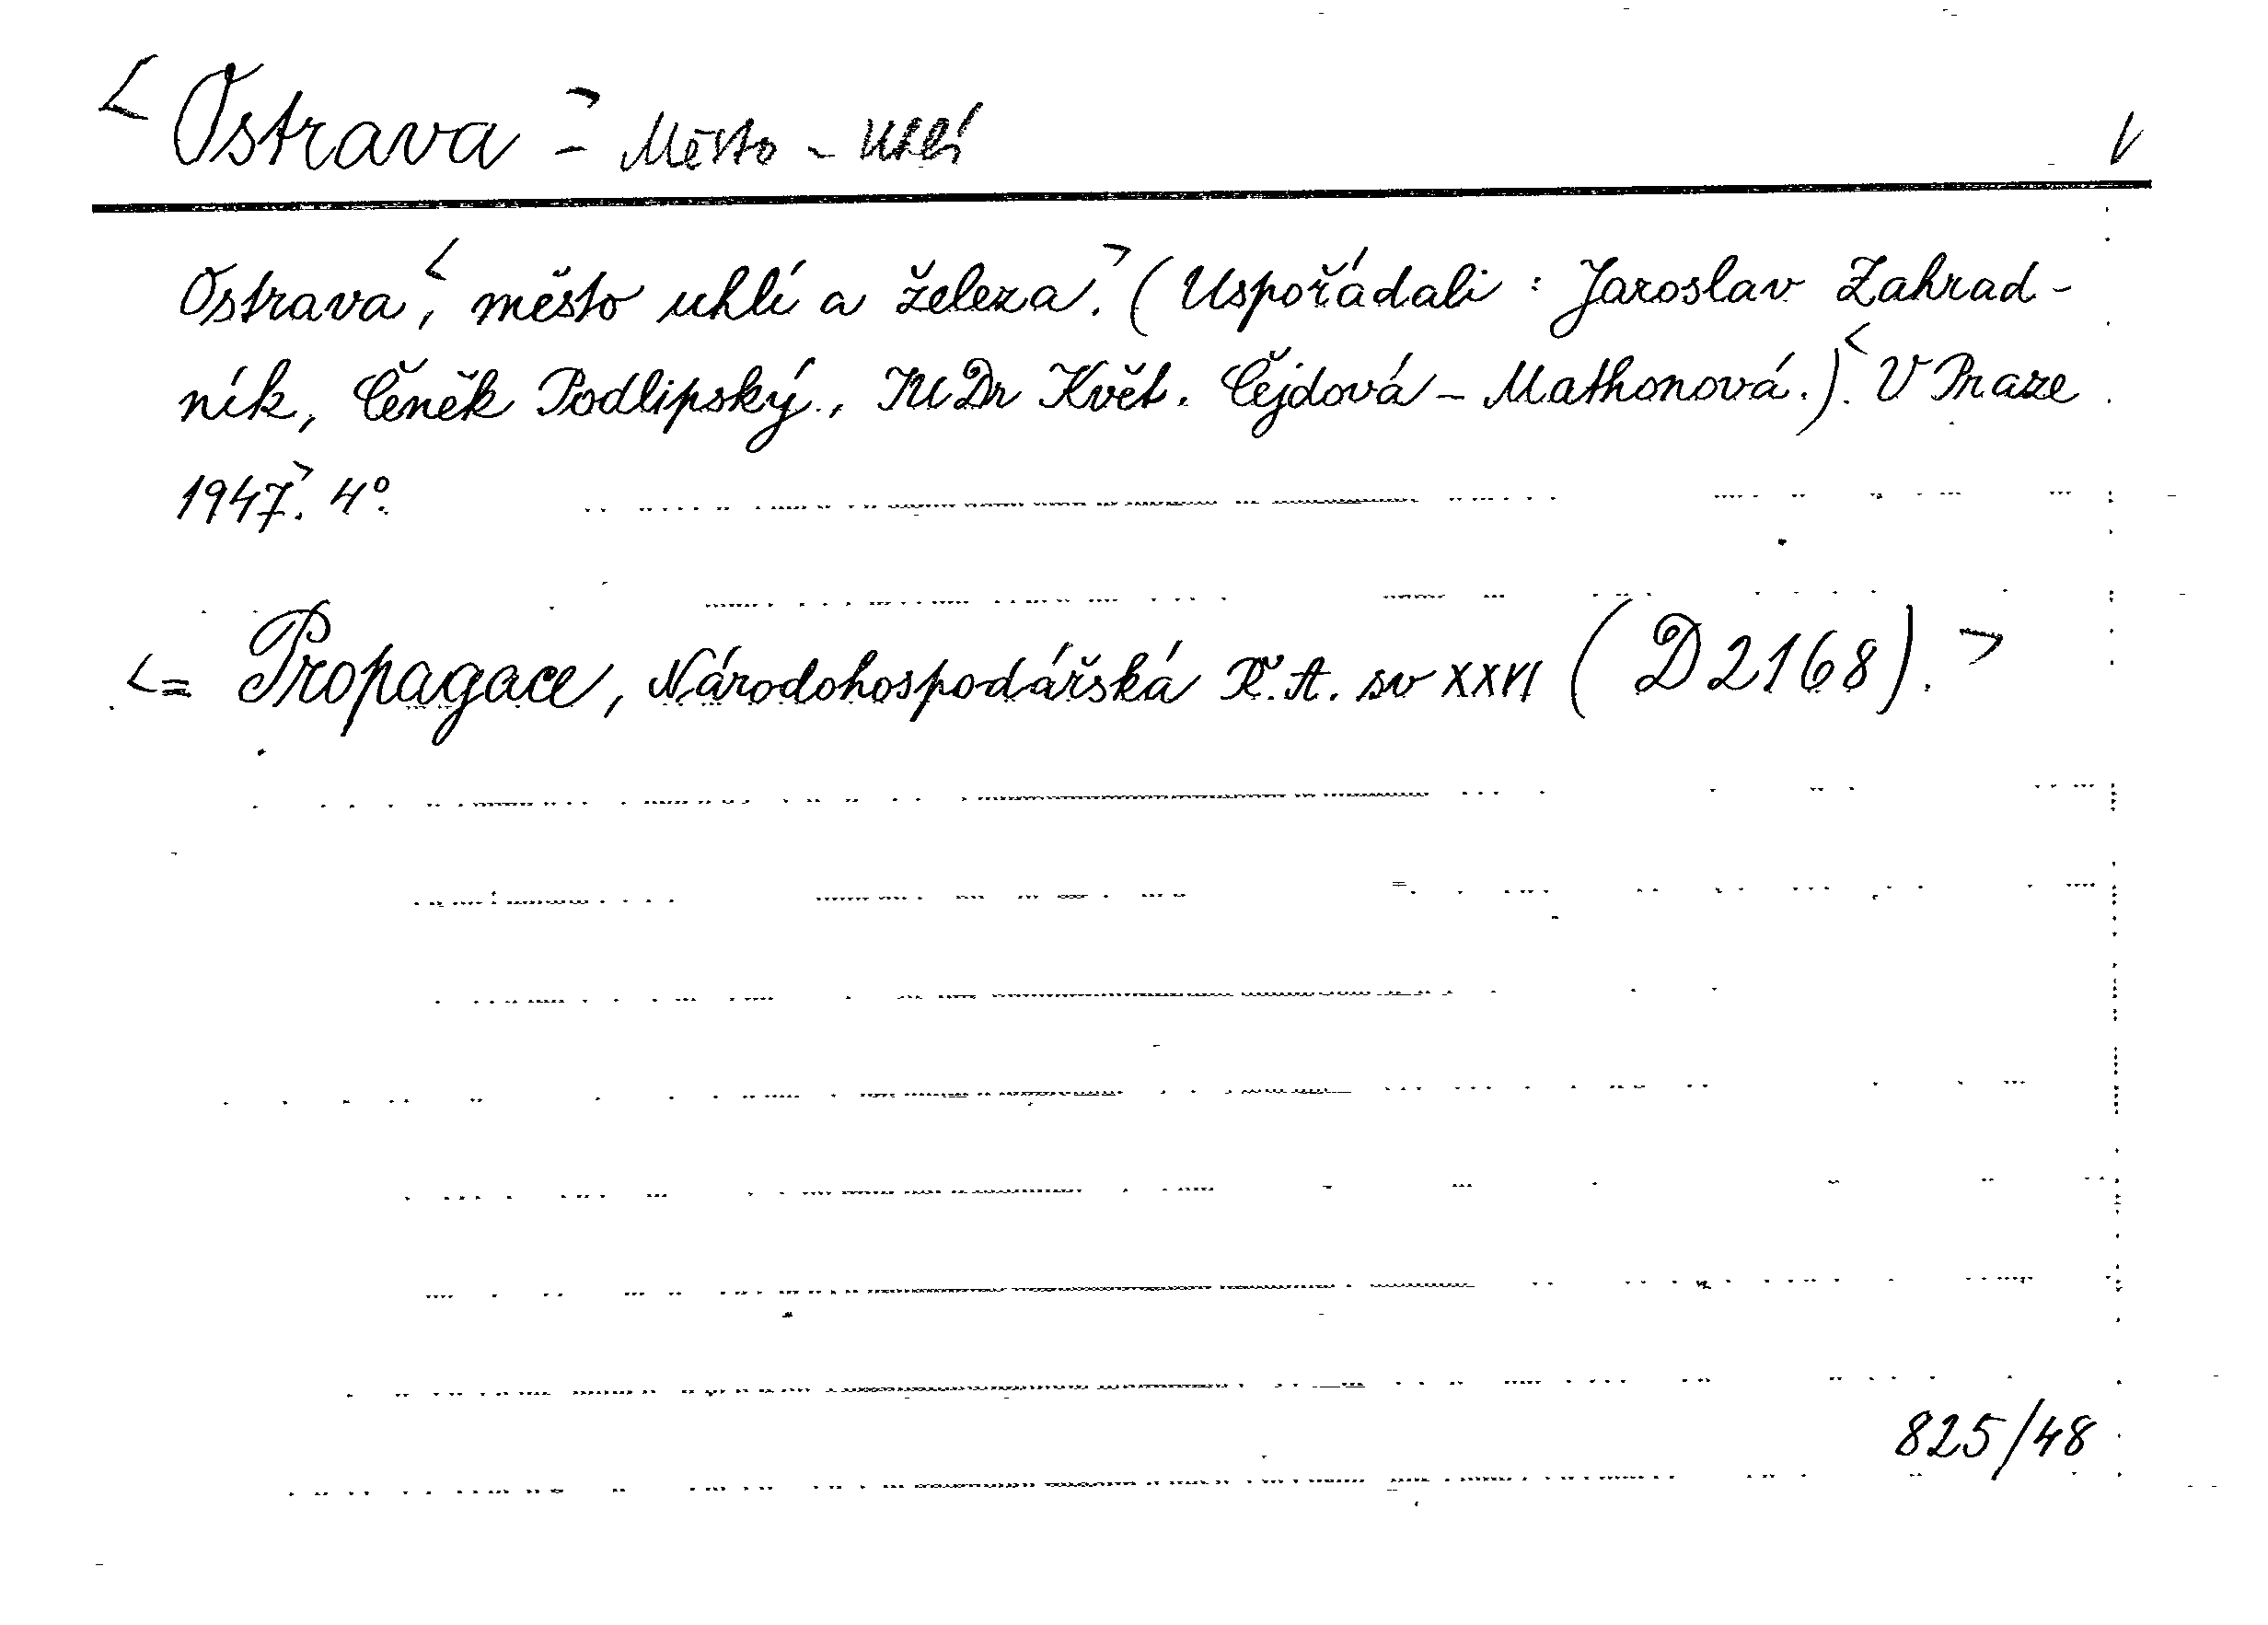 < Ostrava > - Město - Uhlí V
Ostrava <, město uhlí a železa.> (Uspořádali : Jaroslav Zahrad-
ník, Čeněk Podlipský., JUDr Květ. Čejdová - Mathonová.) <. V Praze
1947>. 4°.
<= Propagace, Národohospodářská Ř. A. sv XXVI (D 2168). >
825/48